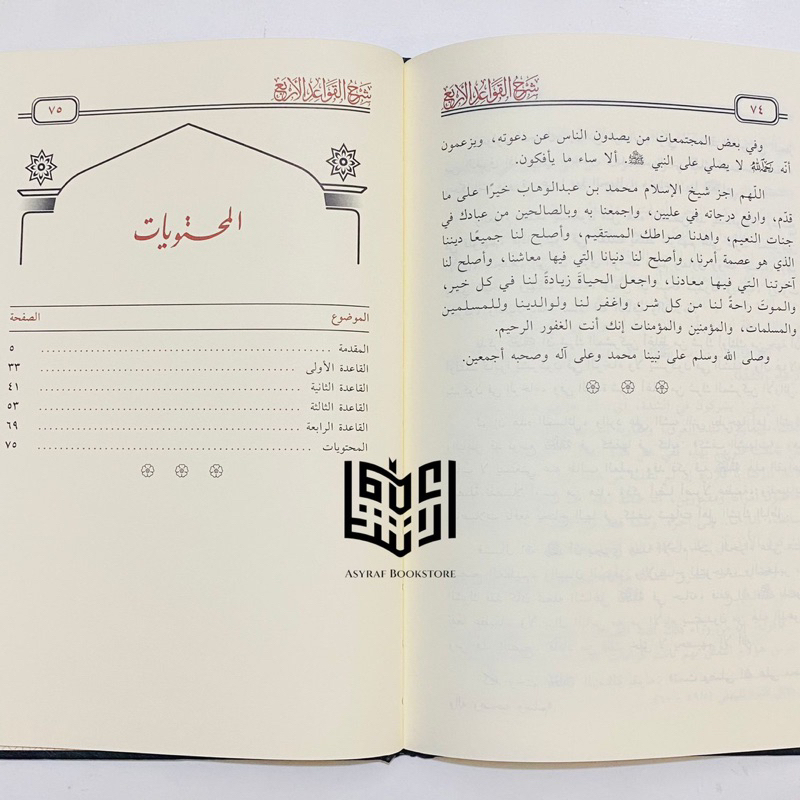 شرح القواعد الأربع
٧٤
وفي بعض المجتمعات من يصدون الناس عن دعوته، ويزعمون
أنّه رَحِمَهُ ٱللَّهُ لا يصلي على النبي ﷺ. ألا ساء ما يأفكون.
اللّهم اجز شيخ الإسلام محمد بن عبدالوهاب خيرًا على ما
قدّم، وارفع درجاته في عليين، واجمعنا به وبالصالحين من عبادك في
جنات النعيم، واهدنا صراطك المستقيم، وأصلح لنا جميعًا ديننا
الذي هو عصمة أمرنا، وأصلح لنا دنيانا التي فيها معاشنا، وأصلح لنا
آخرتنا التي فيها معادنا، واجعل الحياةَ زيادةً لنا في كل خير،
والموتَ راحةً لنا من كل شر، واغفر لنا ولوالدينا وللمسلمين
والمسلمات، والمؤمنين والمؤمنات إنك أنت الغفور الرحيم.
وصلى الله وسلم على نبينا محمد وعلى آله وصحبه أجمعين.
شرح القواعد الأربع
٧٥
المحتويات
الموضوع الصفحة
المقدمة ٥
القاعدة الأولى ٣٣
القاعدة الثانية ٤١
القاعدة الثالثة ٥٣
القاعدة الرابعة ٦٩
المحتويات ٧٥
ASYRAF BOOKSTORE